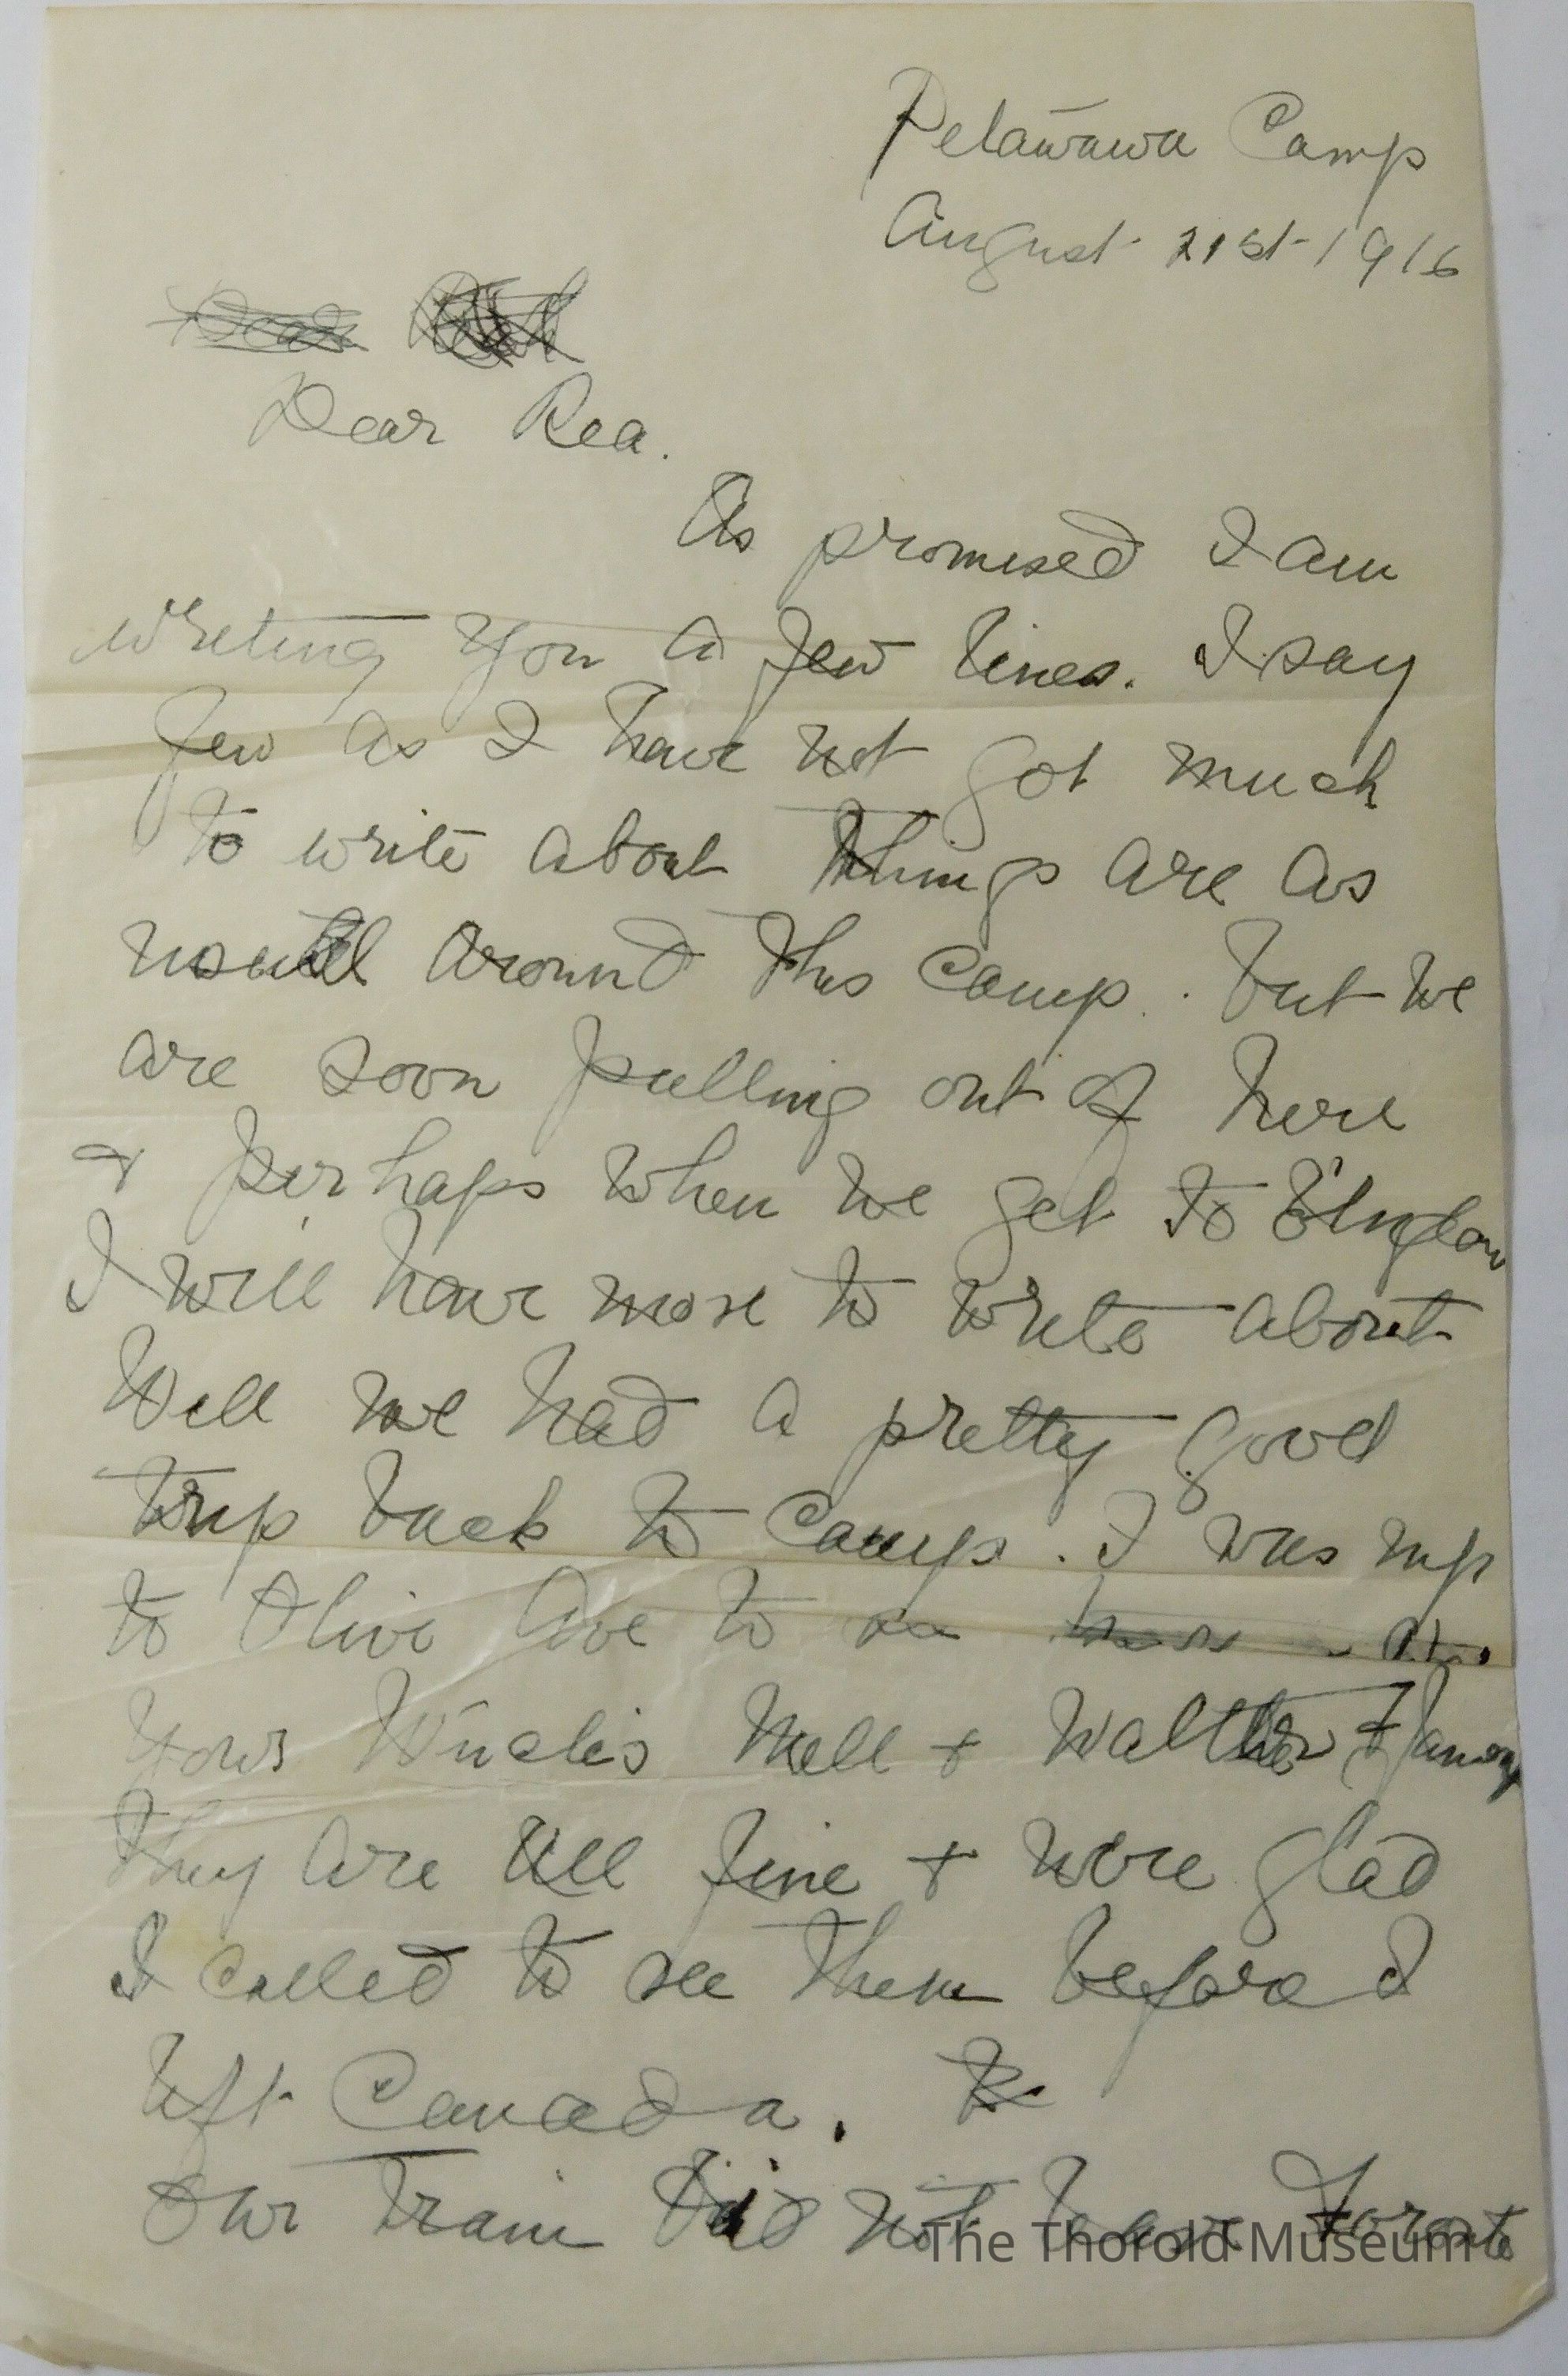 Petawawa Camp
August 21st 1916
Dear
Dear Rea.
As promised I am
writing you a few lines. I say
few as I have not got much
to write about things are as
usuall around this camp. but we
are soon pulling out of here
& perhaps when we get to Englan
I will have more to write about
Well we had a pretty good
trip back to camp. I was up
to Olive Ave to see
Your Uncles Mell & Walther &
They are all fine & were glad
I called to see them before I
left Canada.
Our train did not leave Toronto
The Thorold Museum